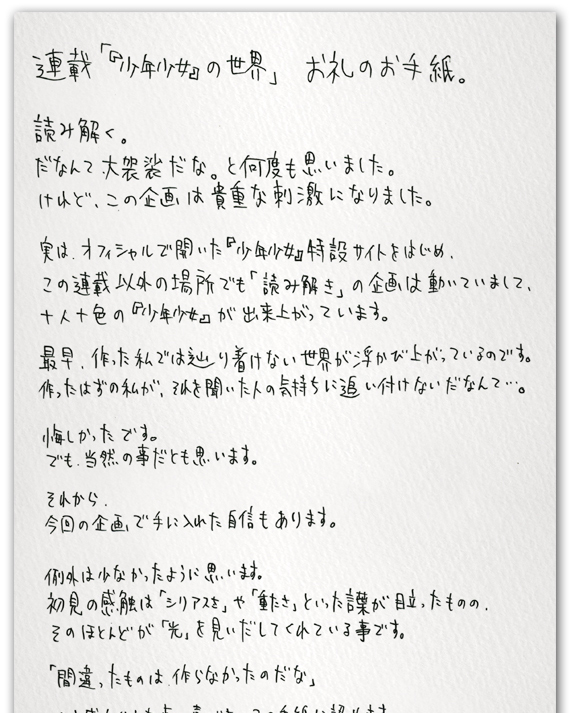 連載「『少年少女』の世界」　お礼のお手紙。
読み解く。
だなんて大袈裟だな。と何度も思いました。
けれど、この企画は貴重な刺激になりました。
実は、オフィシャルで開いた『少年少女』特設サイトをはじめ、
この連載以外の場所でも「読み解き」の企画は動いていまして、
十人十色の『少年少女』が出来上がっています。
最早、作った私では辿り着けない世界が浮かび上がっているのです。
作ったはずの私が、それを聞いた人の気持ちに追い付けないだなんて…。
悔しかったです。
でも、当然の事だとも思います。
それから、
今回の企画で手に入れた自信もあります。
例外は少なかったように思います。
初見の感触は「シリアスさ」や「重たさ」といった言葉が目立ったものの、
そのほとんどが「光」を見いだしてくれている事です。
「間違ったものは、作らなかったのだな」